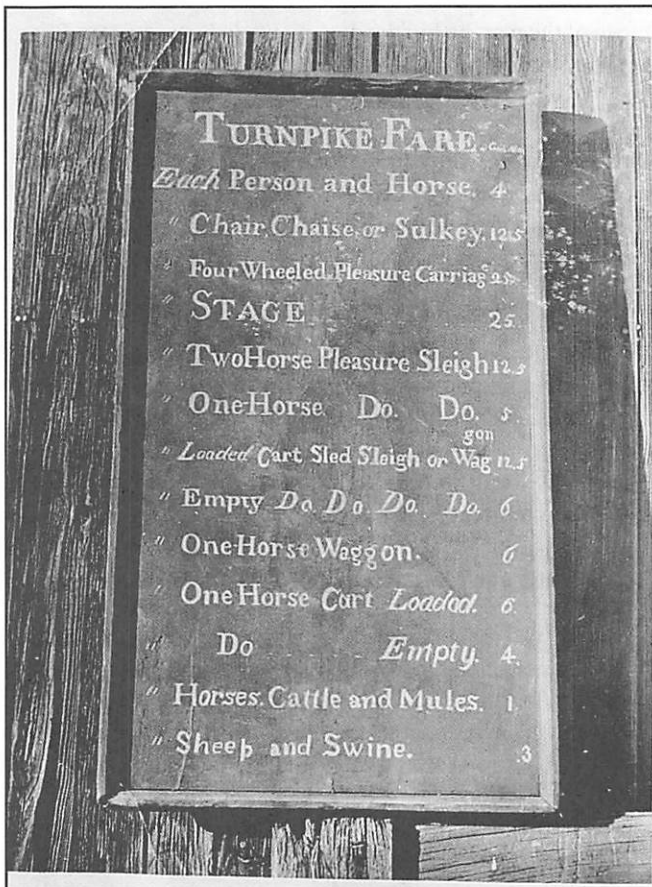 TURNPIKE FARE.
Each Person and Horse. 4
" Chair, Chaise, or Sulkey. 12.5
" Four Wheeled Pleasure Carriage 25
" STAGE 25
" Two Horse Pleasure Sleigh 12.5
" One-Horse. Do. Do. 5
gon
" Loaded Cart Sled Sleigh or Wag 12.5
" Empty Do. Do. Do. Do. 6
" One-Horse Waggon. 6
" One Horse Cart Loaded. 6.
" Do Empty. 4.
" Horses. Cattle and Mules. 1.
" Sheep and Swine. .3